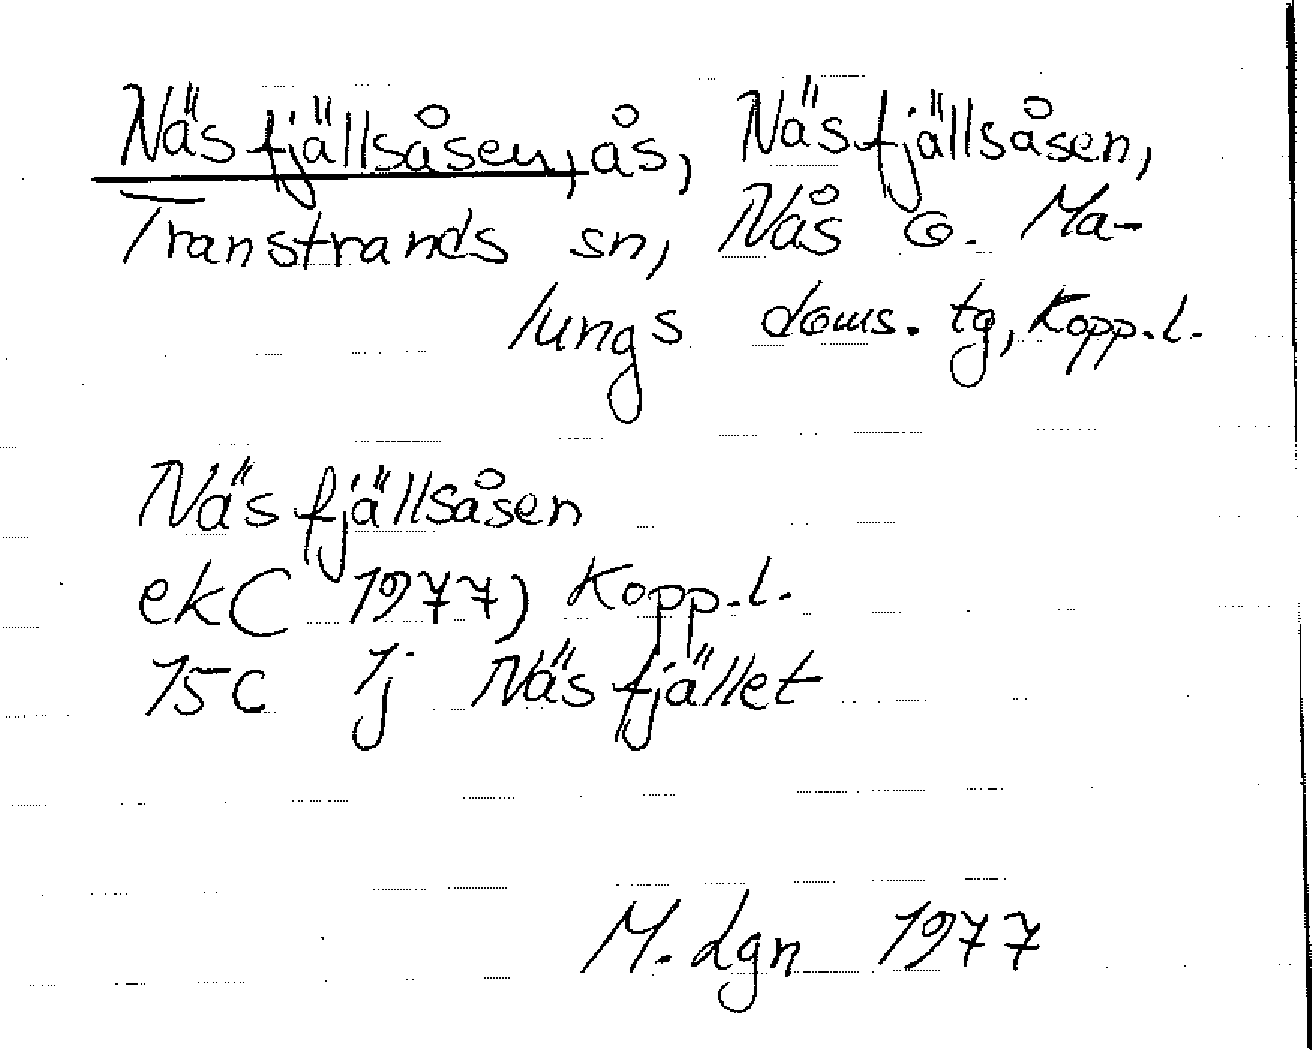 Näsfjällsåsen, ås, Näsfjällsåsen,
Transtrands sn, Nås o. Ma-
lungs doms. tg, Kopp.l.
Näsfjällsåsen
ek( 1977) Kopp.l.
15C 1j Näsfjället
M. Lgn 1977